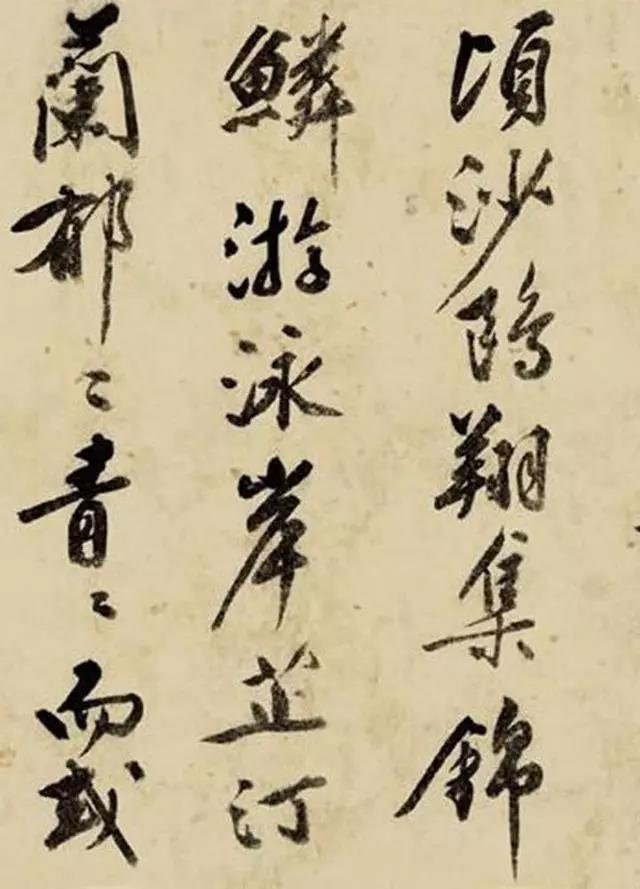 頃沙鷗翔集錦
鱗游泳岸芷汀
蘭郁〻青〻而或